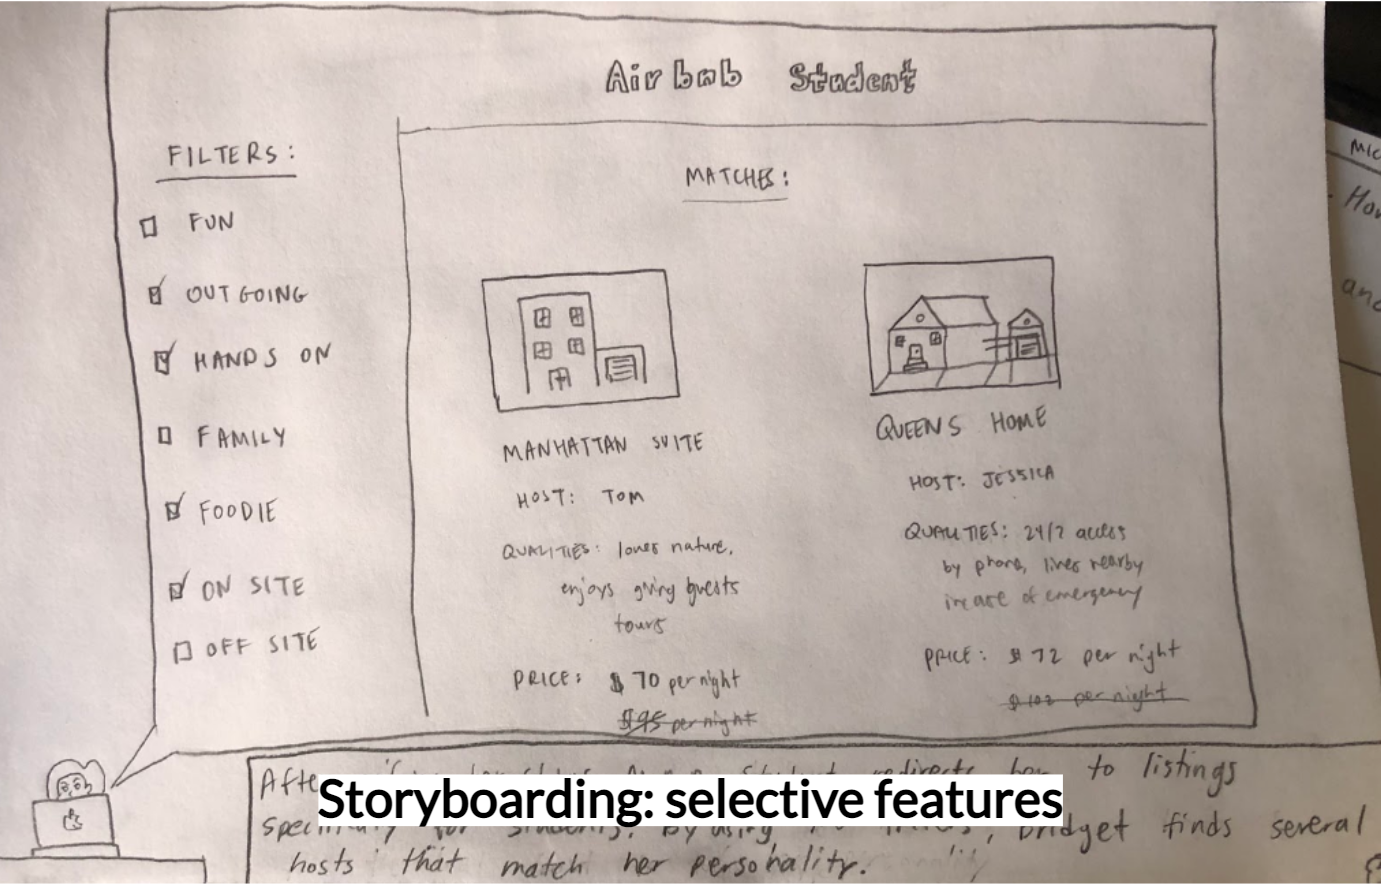 Airbnb Student
FILTERS:
FUN
OUTGOING
HANDS ON
FAMILY
FOODIE
ON SITE
OFF SITE
MATCHES:
MANHATTAN SUITE
HOST: TOM
QUALITIES: loves nature,
enjoys giving guests
tours
PRICE: $70 per night
$95 per night
QUEENS HOME
HOST: JESSICA
QUALITIES: 24/7 access
by phone, lives nearby
incase of emergency
PRICE: $72 per night
$102 per night
to listings
Storyboarding: selective features
bridget finds several
hosts that match her personality.
and